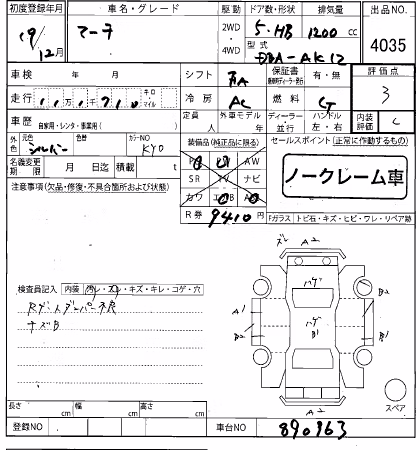 初度登録年月 車名・グレード 駆動 ドア数・形状 排気量 出品NO.
19/12月 マーチ 2WD・4WD 5・HB 1200cc 4035
型式 DBA-AK12
車検 年 月 シフト FA 保証書 有・無 評価点
走行 キロ マイル 冷房 AC 燃料 G 3
車歴 自家用・レンタ・事業用( ) 定員 人 外車モデル 年 ディーラー・並行 ハンドル 左・右 内装 C
外色 元色 シルバー 色替 カラーNO KY0 装備品(純正品に限る) セールスポイント(正常に作動するもの)
名義変更期限 月 日迄 積載 t PS PW AW
SR TV ナビ
カワ エアB AB
R券 9410
ノークレーム車
注意事項(欠品・修復・不具合箇所および状態)
Fガラス トビ石・キズ・ヒビ・ワレ・リペア跡
ズレ A2
ハゲ
A1 B2
ハゲ B1
B2 B1
A2
スペア
検査員記入 内装 汚レ・スレ・キズ・キレ・コゲ・穴
Rゲートダンパー不良
キズB
長さ cm 幅 cm 高さ cm
登録NO 車台NO 890963